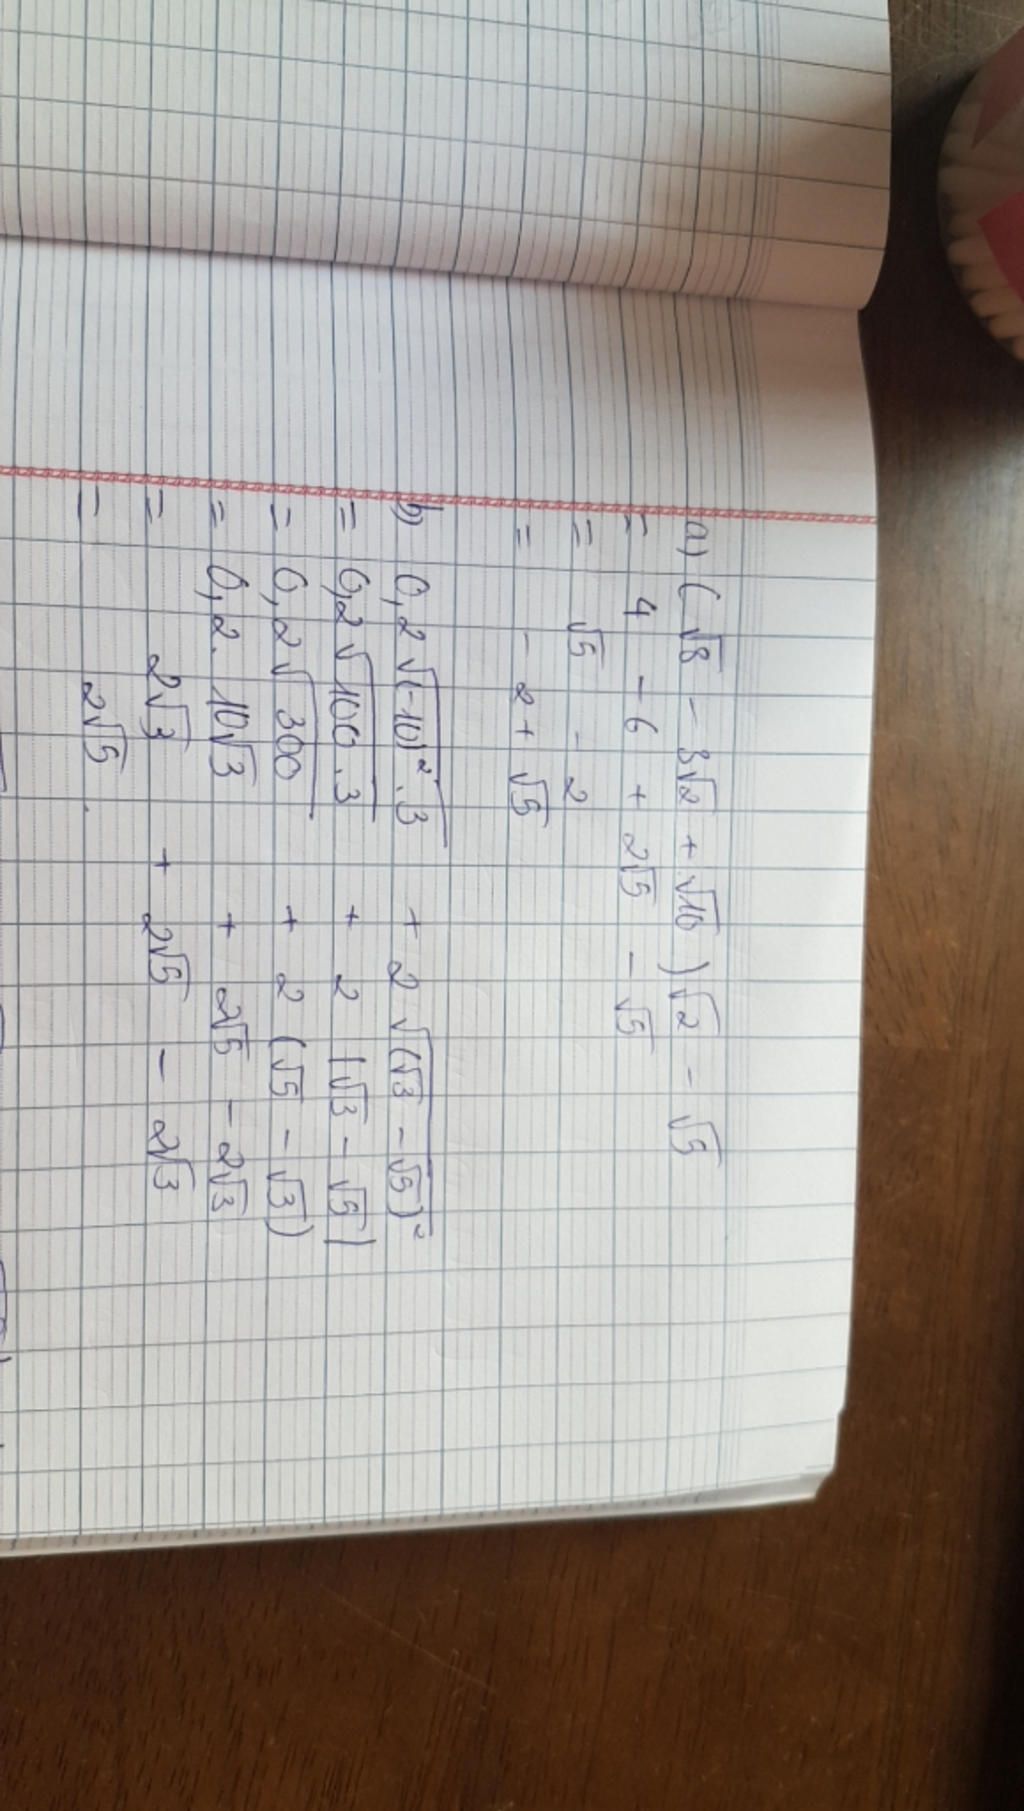 a) (√8 - 3√2 + √10)√2 - √5
= 4 - 6 + 2√5 - √5
= √5 - 2
= - 2 + √5
b) 0,2√(-10)².3 + 2√(√3 - √5)²
= 0,2√100.3 + 2 |√3 - √5|
= 0,2√300 + 2 (√5 - √3)
= 0,2. 10√3 + 2√5 - 2√3
= 2√3 + 2√5 - 2√3
= 2√5.